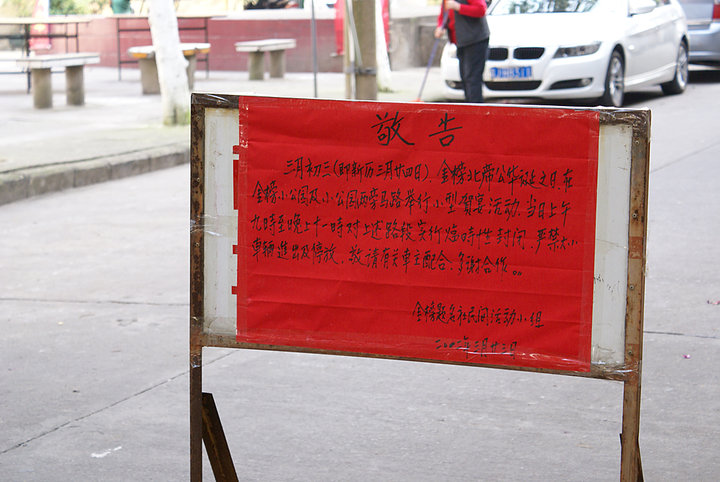 敬告
三月初三(即新历三月廿四日),金榜北帝公华诞之日,在
金榜小公园及小公园两旁马路举行小型贺宴活动,当日上午
九時至晚上十一時对上述路段实行临時性封闭,严禁大小
車辆進出及停放,敬请有关車主配合,多谢合作。
金榜 社民间活动小组
三月廿三日